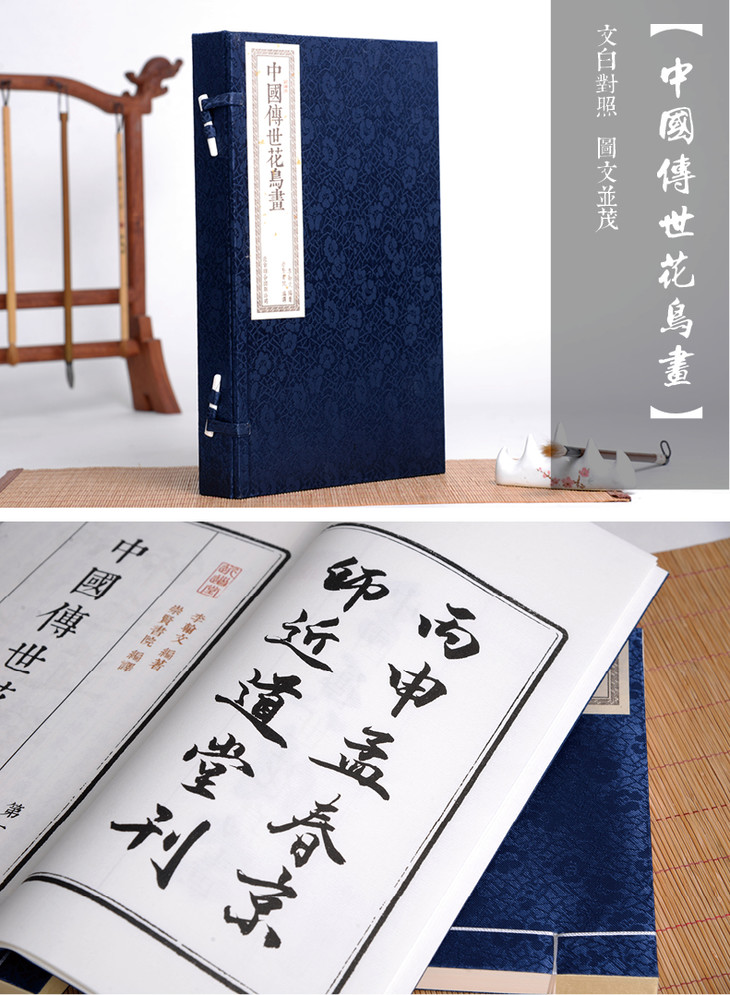 【中國傳世花鳥畫】
文白對照 圖文並茂
中國傳世花鳥畫
丙申孟春京
師近道堂刊
李翰文 編著
崇賢書院 編譯
中國傳世
第